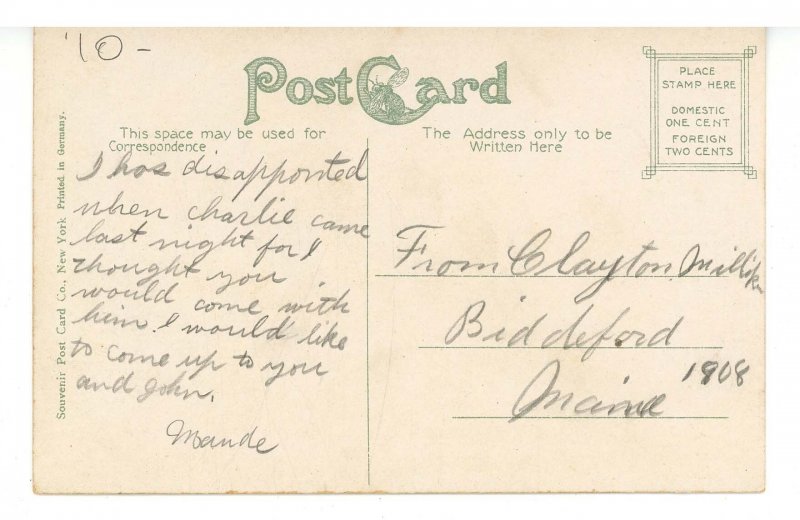 '10-
Post Card
PLACE
STAMP HERE
DOMESTIC
ONE CENT
FOREIGN
TWO CENTS
This space may be used for
Correspondence
The Address only to be
Written Here
Souvenir Post Card Co., New York Printed in Germany.
I has disappointed
when Charlie came
last night for I
thought you
would come with
him. I would like
to come up to you
and John.
Maude
From Clayton Milliken
Biddeford
Maine 1908